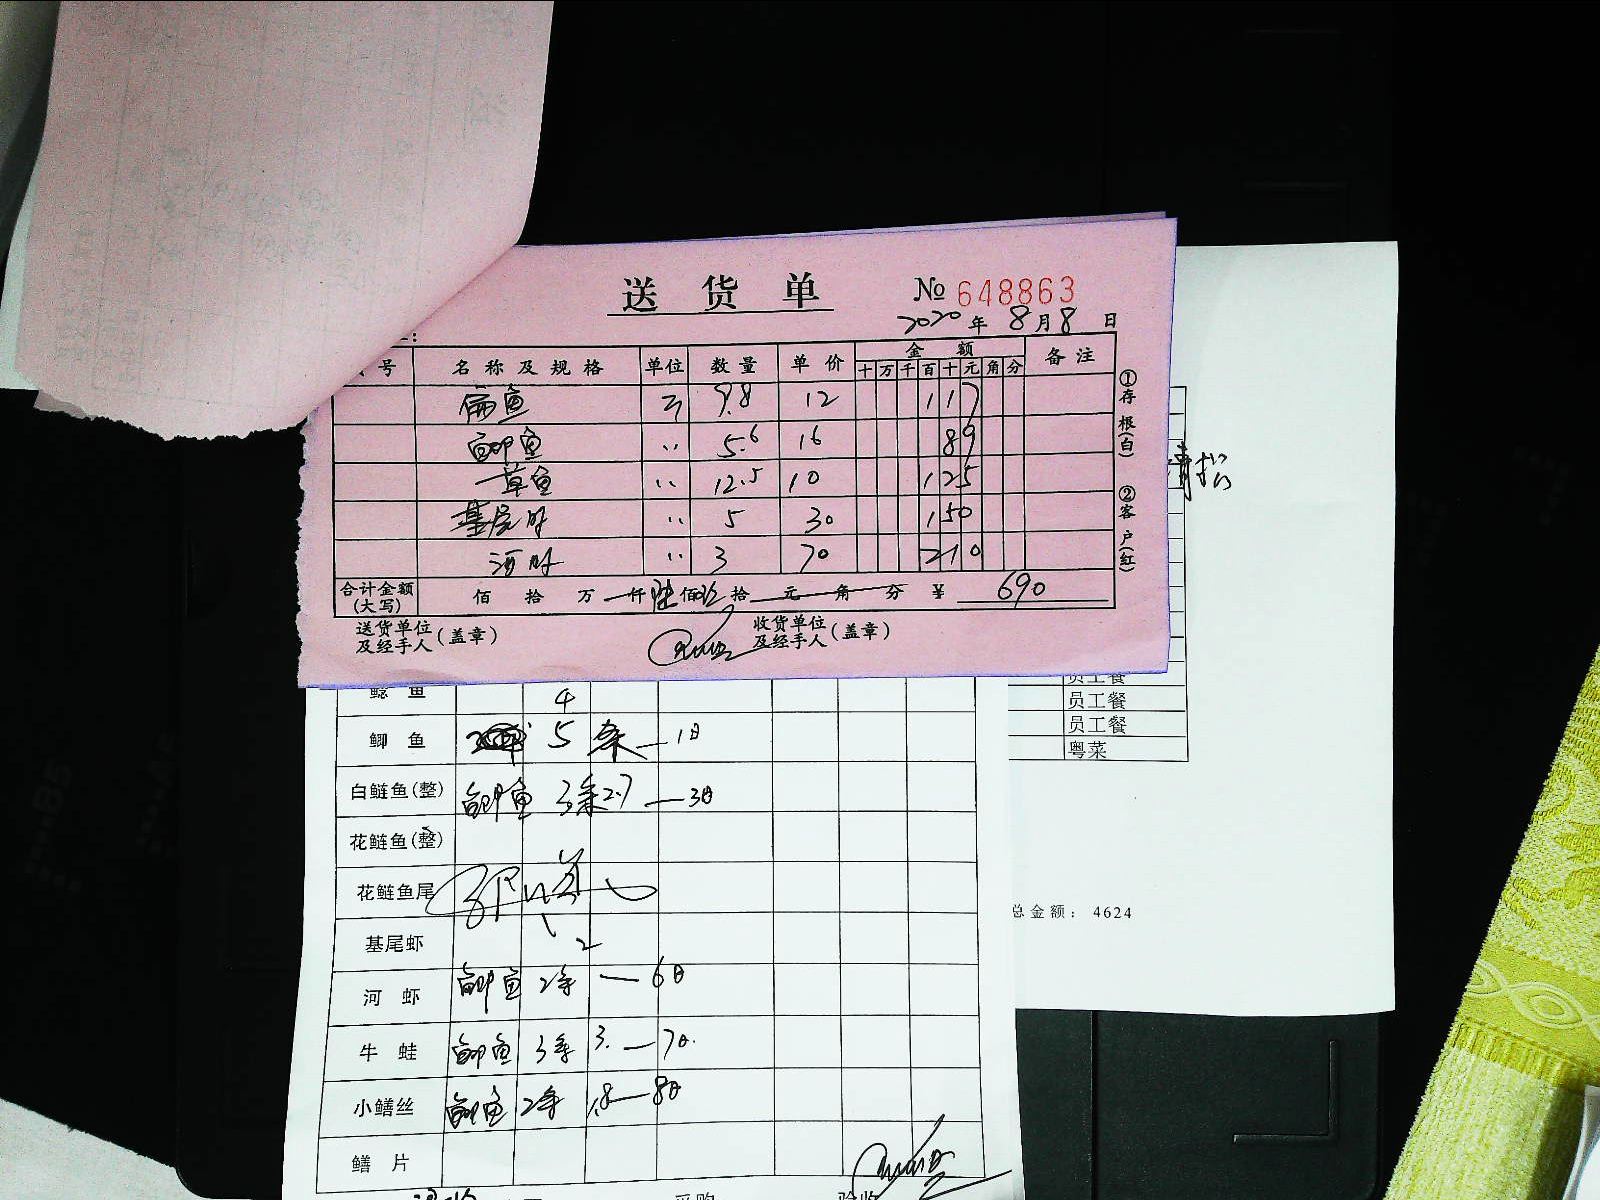 送货单 № 648863
2020年8月8日
号 名称及规格 单位 数量 单价 金额 备注
十 万 千 百 十 元 角 分
扁鱼 斤 9.8 12 117
鲫鱼 〃 5.6 16 89
草鱼 〃 12.5 10 125
基尾虾 〃 5 30 150
河虾 〃 3 70 210
合计金额(大写) 佰 拾 万 仟 陆佰玖拾 元 角 分 ¥ 690
送货单位及经手人(盖章) 收货单位及经手人(盖章)
①存根(白) ②客户(红)
青松
鲶鱼 4
鲫鱼 5 条 — 1日
白鲢鱼(整) 鲫鱼 3条 2.7 — 3日
花鲢鱼(整)
花鲢鱼尾
基尾虾 2
河虾 鲫鱼 2条 — 6日
牛蛙 鲫鱼 3条 3. — 7日.
小鳝丝 鲫鱼 2条 1.8 — 8日
鳝片
采购 验收
员工餐
员工餐
员工餐
粤菜
总金额: 4624